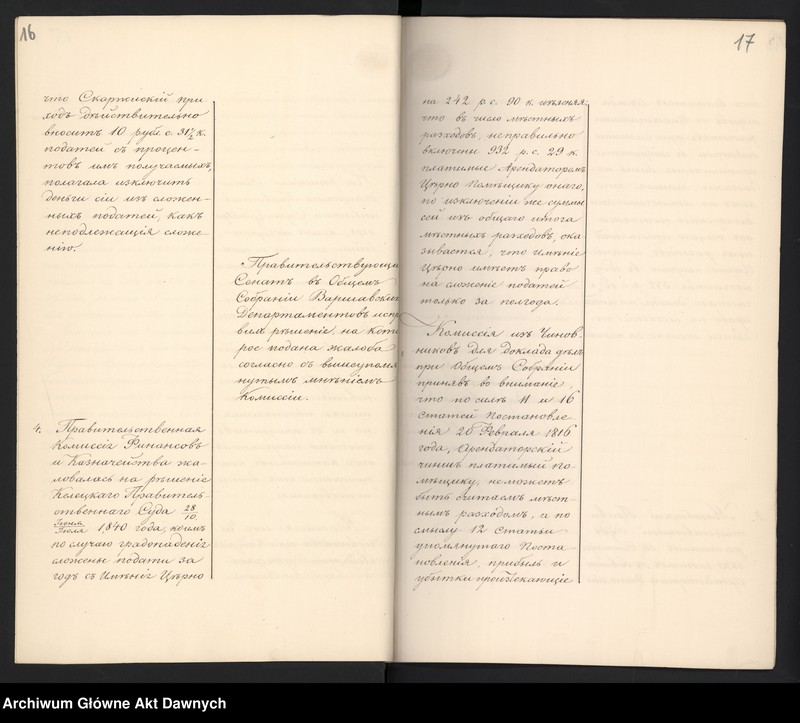 16
что Скаржискій при
ходъ дѣйствительно
вноситъ 10 руб. с. 31½ к.
податей съ процен-
товъ имъ получаемыхъ,
полагала исключить
деньги сіи изъ сложен-
ныхъ податей, какъ
неподлежащія сложе-
нію.
Правительствующій
Сенатъ въ Общемъ
Собраніи Варшавскихъ
Департаментовъ испра
вилъ рѣшеніе, на кото
рое подана жалоба
согласно съ вышеупомя
нутымъ мнѣніемъ
Комиссіи.
4. Правительственная
Комиссія Финансовъ
и Казначейства жа-
ловалась на рѣшеніе
Келецкаго Правитель-
ственнаго Суда 28/10
Іюня/Іюля 1,840 года, коимъ
по случаю градопаденія
сложены подати за
годъ съ Имѣнія Цѣрно
17
на 242 р. с. 90 к. изъясняя,
что въ число мѣстныхъ
расходовъ, неправильно
включены 932 р. с. 29 к.
платимые Арендаторомъ
Цѣрно Помѣщику онаго,
по изключеніи же суммы
сей изъ общаго итога
мѣстныхъ расходовъ, ока
зывается, что имѣніе
Цѣрно имѣетъ право
на сложеніе податей
только за полгода.
Комиссія изъ Чинов-
никовъ для доклада дѣлъ
при Общемъ Собраніи
принявъ во вниманіе,
что по силѣ 11 и 16
статей Постановле
нія 26 Февраля 1816
года, Арендаторскій
чиншъ платимый По-
мѣщику, неможетъ
быть считаемъ мѣст
нымъ расходомъ, а по
смыслу 12 Статьи
упомянутаго Поста-
новленія, прибыль и
убытки проистекающіе
Archiwum Główne Akt Dawnych